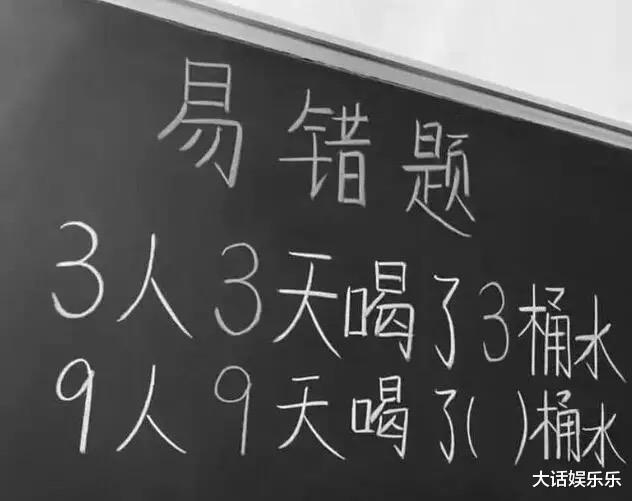 易错题
3人3天喝了3桶水
9人9天喝了( )桶水
大话娱乐乐